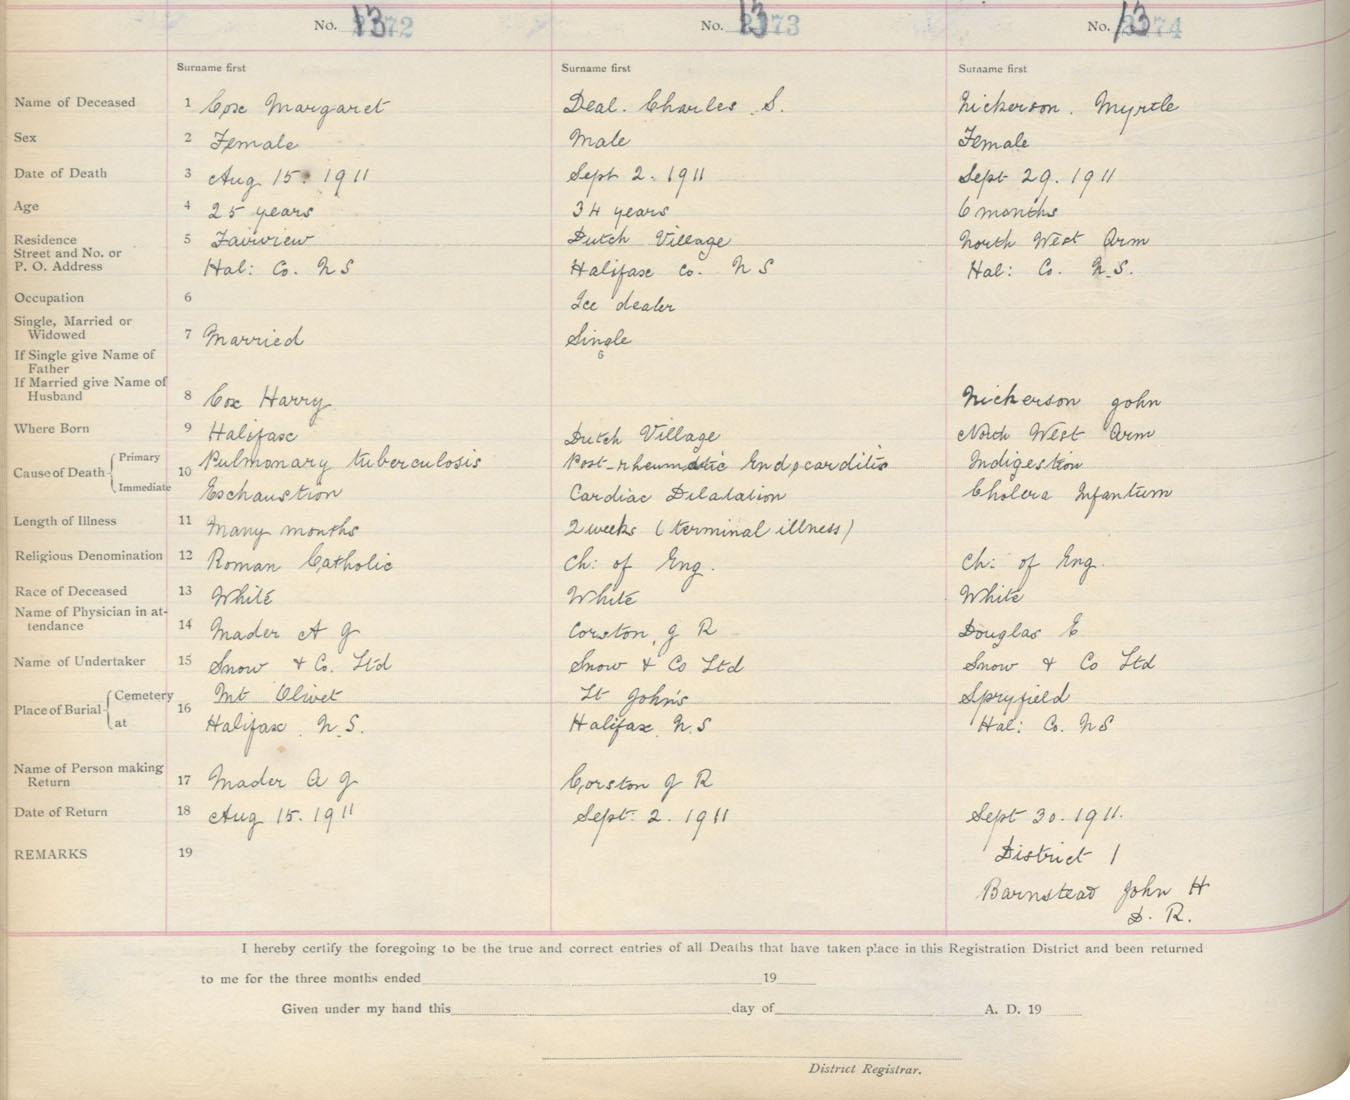 No. 1372 No. 1373 No. 1374
Surname first Surname first Surname first
Name of Deceased 1 Cox Margaret Deal. Charles S. Nickerson. Myrtle
Sex 2 Female Male Female
Date of Death 3 Aug 15. 1911 Sept 2. 1911 Sept 29. 1911
Age 4 25 years 34 years 6 months
Residence 5 Fairview Dutch Village North West Arm
Street and No. or
P. O. Address Hal: Co. N S Halifax Co. N S Hal: Co. N.S.
Occupation 6 Ice dealer
Single, Married or
Widowed 7 Married Single
If Single give Name of
Father
If Married give Name of
Husband 8 Cox Harry Nickerson John
Where Born 9 Halifax Dutch Village North West Arm
Cause of Death Primary 10 Pulmonary tuberculosis Post-rheumatic Endocarditis Indigestion
Immediate Exhaustion Cardiac Dilatation Cholera Infantum
Length of Illness 11 Many months 2 weeks (terminal illness)
Religious Denomination 12 Roman Catholic Ch: of Eng. Ch: of Eng.
Race of Deceased 13 White White White
Name of Physician in at-
tendance 14 Mader A G Corston, J R Douglas E
Name of Undertaker 15 Snow & Co. Ltd Snow & Co Ltd Snow & Co Ltd
Place of Burial Cemetery 16 Mt Olivet St John's Spryfield
at Halifax. N.S. Halifax. N.S Hal: Co. N S
Name of Person making
Return 17 Mader A G Corston J R
Date of Return 18 Aug 15. 1911 Sept. 2. 1911 Sept 30. 1911.
REMARKS 19 District 1
Barnstead John H
D. R.
I hereby certify the foregoing to be the true and correct entries of all Deaths that have taken place in this Registration District and been returned
to me for the three months ended 19
Given under my hand this day of A. D. 19
District Registrar.